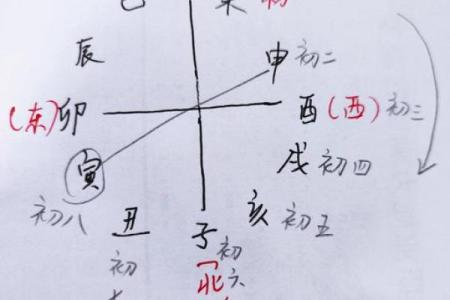 未
辰
申 初二
(东)卯
酉(西)初三
寅
戌 初四
初八
丑
子
亥 初五
初
初六
(北